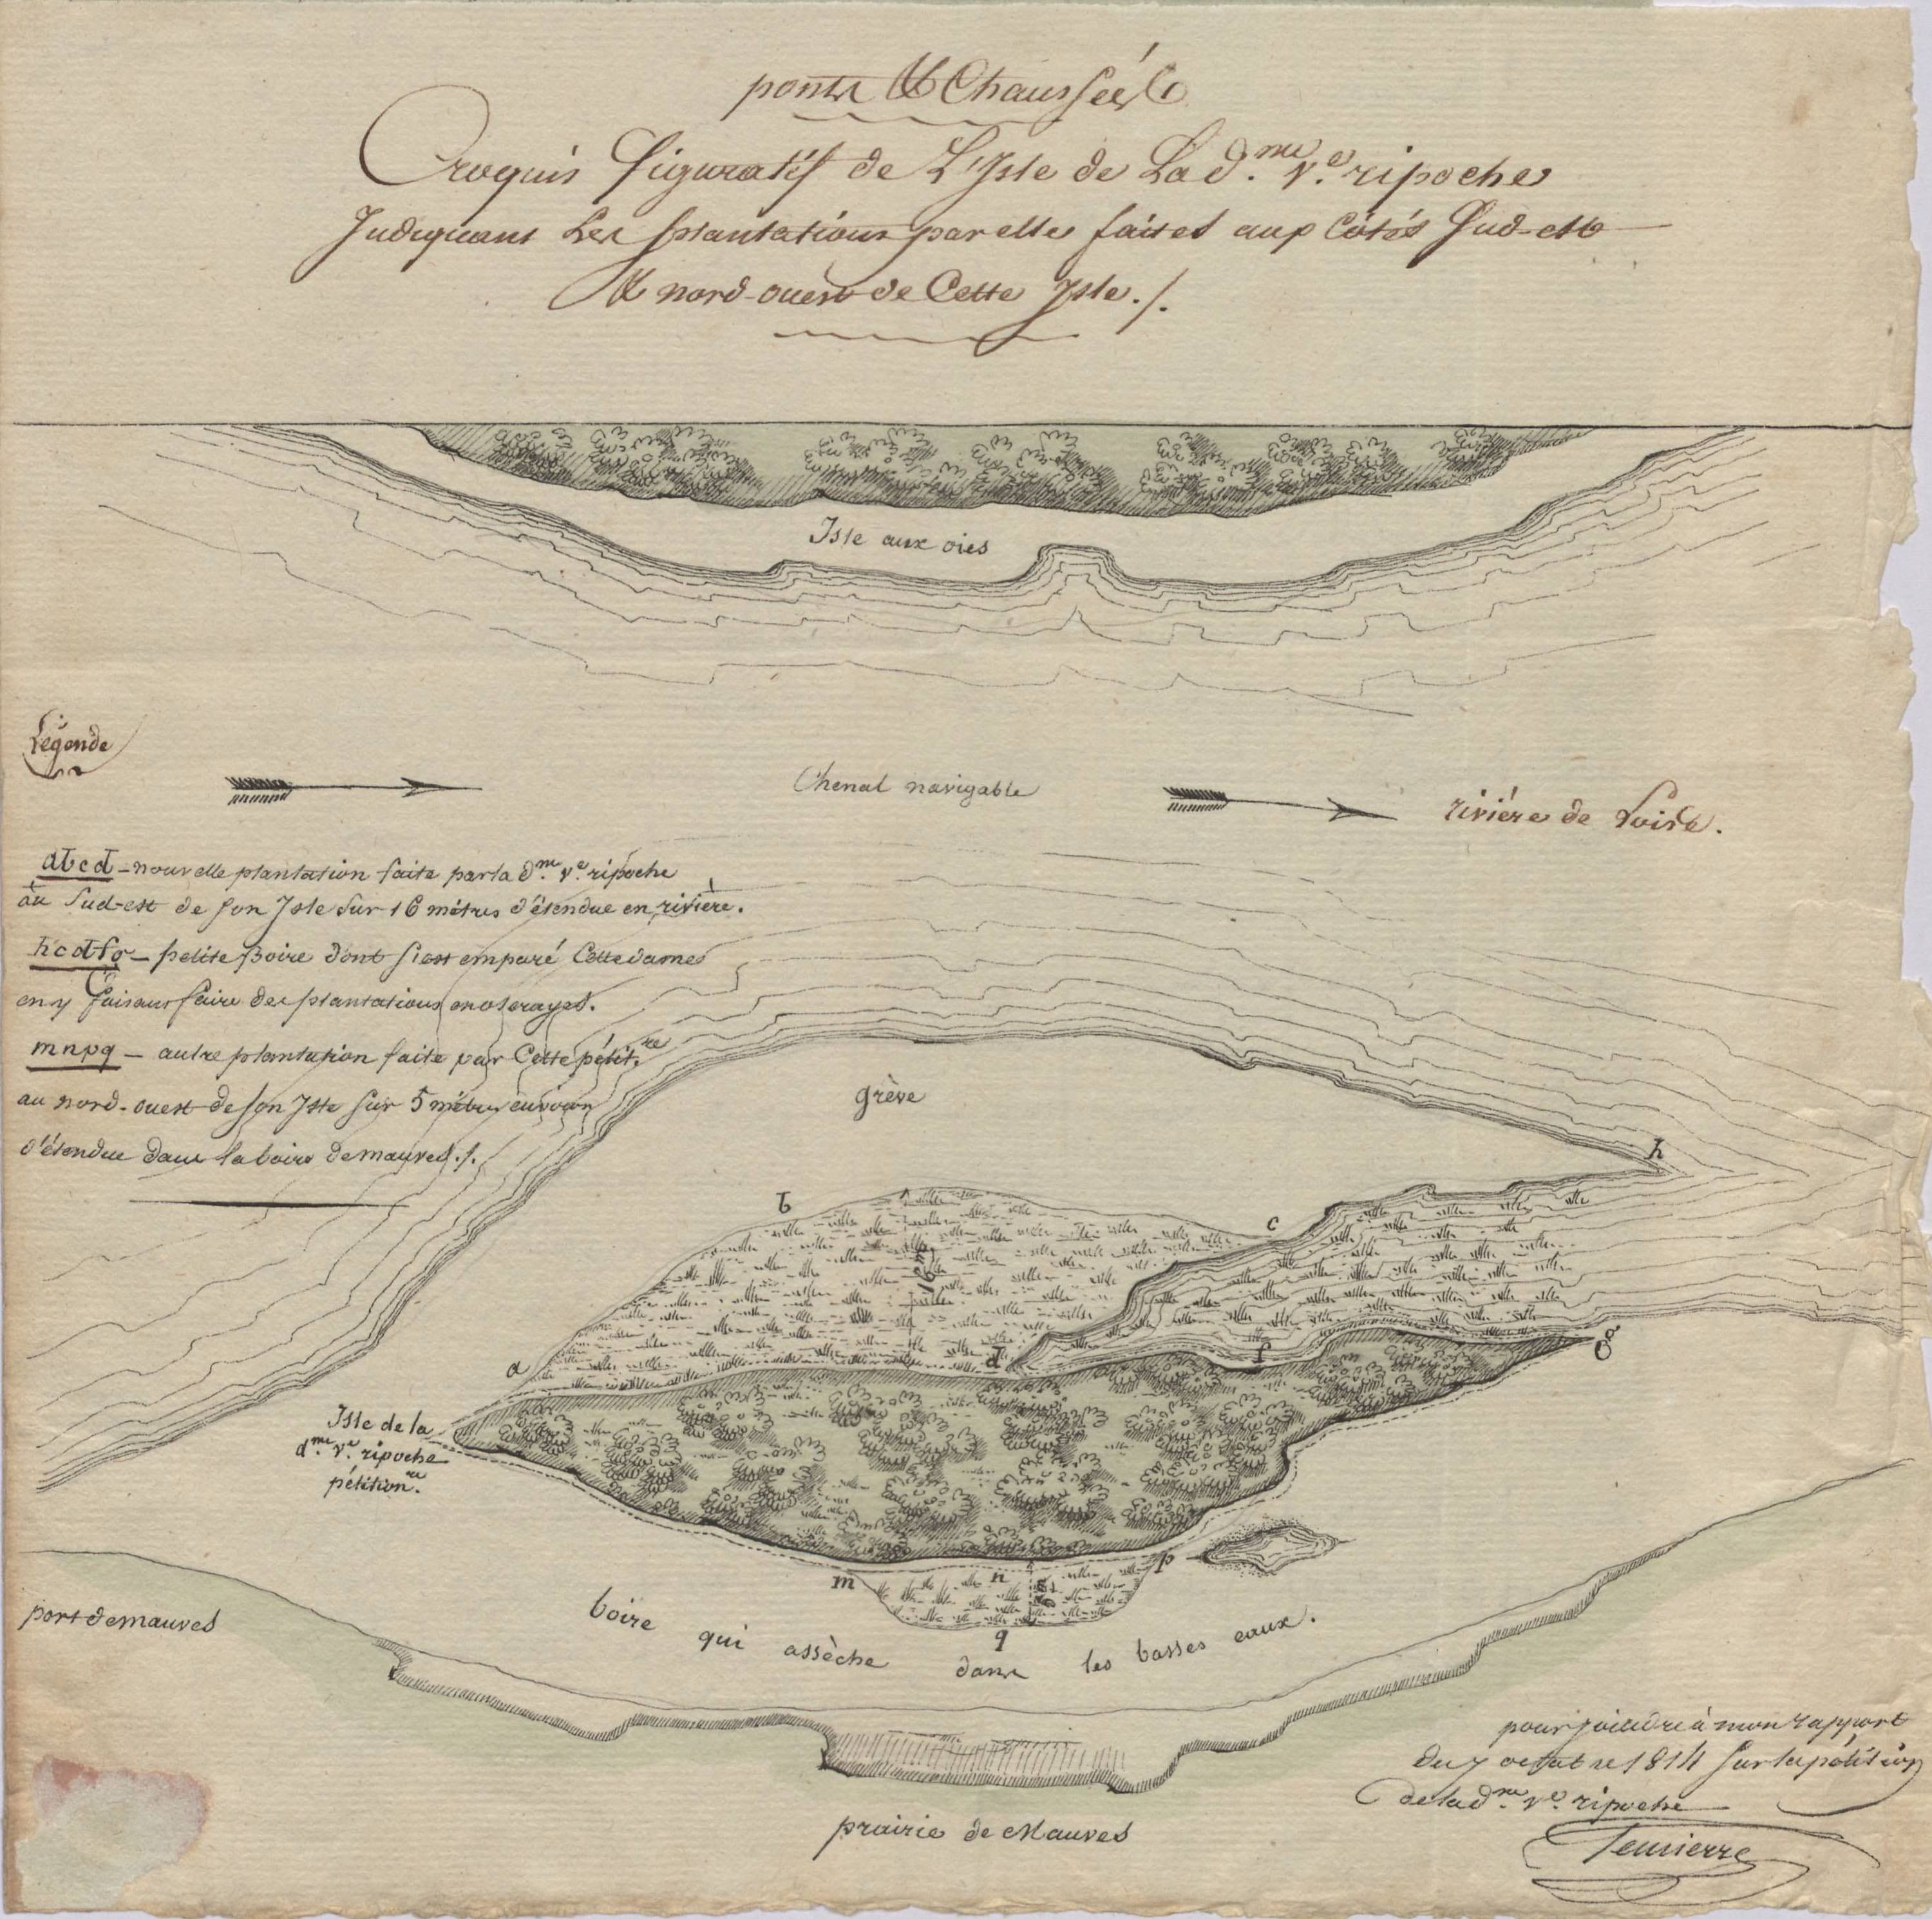 ponts & Chaussées
Croquis figuratif de L'Isle de La d.me v.e ripoche
Indiquant Les plantations par elle faites aux Côtés Sud-est
& nord-ouest de Cette Isle ./.
Isle aux oies
Légende
Chenal navigable
rivière de Loire.
abcd - nouvelle plantation faite par la d.me v.e ripoche
au Sud-est de son Isle sur 16 mètres d'étendue en rivière.
hcdfg - petite Boire dont s'est emparé Cette dame
en y faisant faire des plantations en oserayes.
mnpq - autre plantation faite par Cette pétit.re
au nord-ouest de son Isle sur 5 mètres environ
d'étendue dans la boire de mauves ./.
grève
h
b
c
16 m
a
d
f
g
Isle de la
d.me v.e ripoche
pétition.re
m
n
p
5 m
q
port de mauves
boire qui assèche dans les basses eaux.
prairie de Mauves
pour joindre à mon rapport
du 7 octobre 1814 sur la pétition
de la d.me v.e ripoche